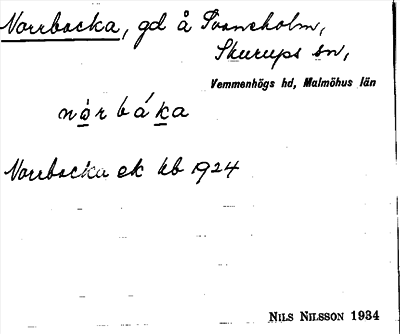 Norrbacka, gd å Svaneholm,
Skurups sn,
Vemmenhögs hd, Malmöhus län
nòrbáka
Norrbacka ek kb 1924
NILS NILSSON 1934